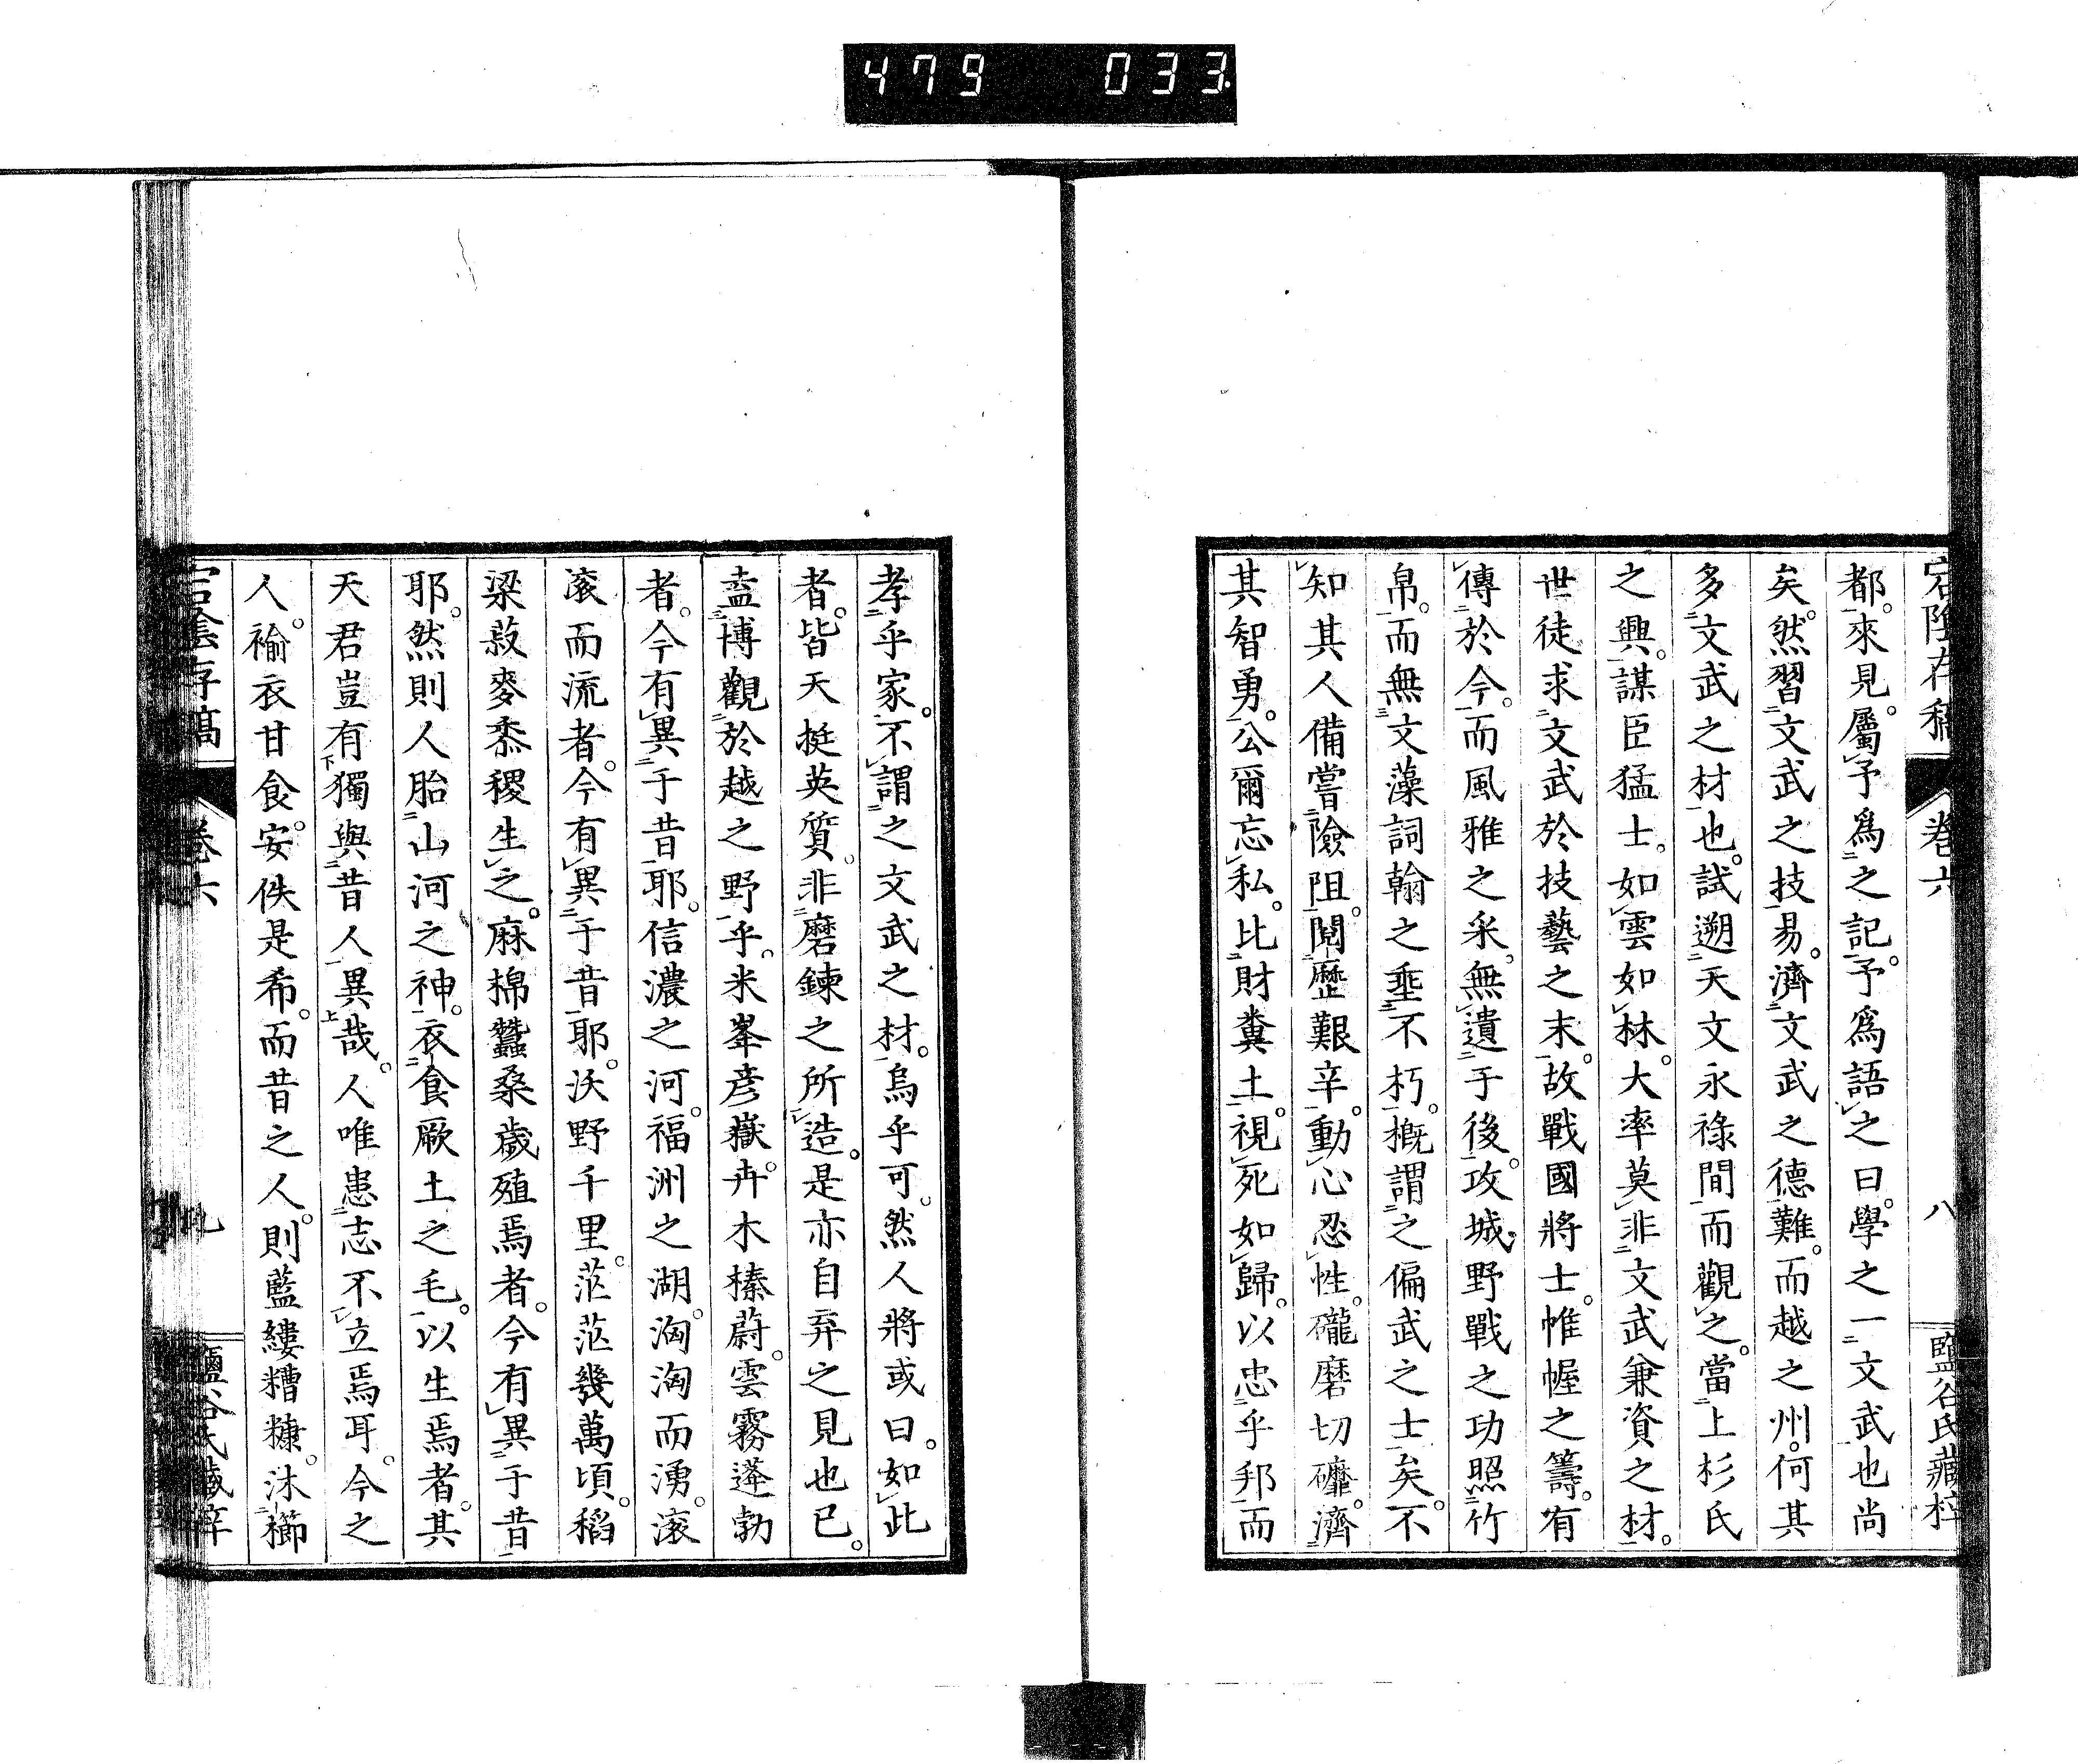 479 033
宕陰存稿 卷六 八 鹽谷氏藏梓
都。來見。屬予爲之記。予爲語之曰。學之一文武也尚
矣。然習文武之技易。濟文武之德難。而越之州。何其
多文武之材也。試遡天文永祿間而觀之。當上杉氏
之興。謀臣猛士。如雲如林。大率莫非文武兼資之材。
世徒求文武於技藝之末。故戰國將士。帷幄之籌。有
傳於今。而風雅之采。無遺于後。攻城野戰之功照竹
帛。而無文藻詞翰之垂不朽。概謂之偏武之士矣。不
知其人備嘗險阻。閱歷艱辛。動心忍性。礲磨切礳。濟
其智勇。公爾忘私。比財糞土。視死如歸。以忠乎邦而
孝乎家。不謂之文武之材。烏乎可。然人將或曰。如此
者。皆天挺英質。非磨鍊之所造。是亦自弃之見也已。
盍博觀於越之野乎。米峯彦嶽。卉木榛蔚。雲霧蓬勃
者。今有異于昔耶。信濃之河。福洲之湖。洶洶而湧。滚
滚而流者。今有異于昔耶。沃野千里。茫茫幾萬頃。稻
梁菽麥黍稷生之。麻棉蠶桑歲殖焉者。今有異于昔
耶。然則人胎山河之神。衣食厥土之毛。以生焉者。其
天君豈有獨與昔人異哉。人唯患志不立焉耳。今之
人。褕衣甘食。安佚是希。而昔之人。則藍縷糟糠。沐櫛
宕陰存稿 卷六 九 鹽谷氏藏梓